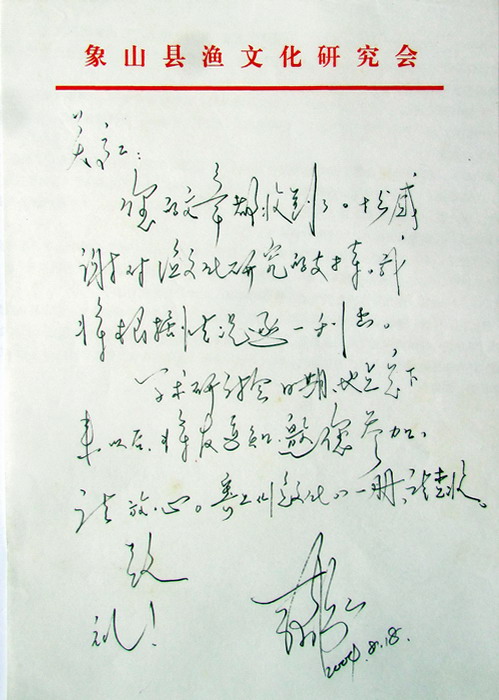 象山县渔文化研究会
您的文章都收到了。十分感
谢对渔文化研究的支持。我
将根据情况逐一刊出。
学术研讨会日期、地点定下
来以后,将发通知,邀您参加,
请放心。寄上《渔文化》一册,请查收。
致
礼!
2004.8.18.